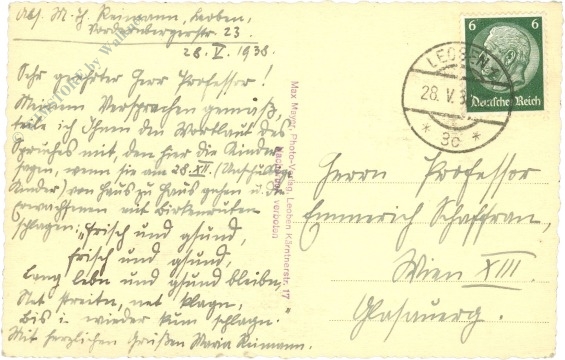 Abs. M. Th. Reimann, Leoben,
Vordernbergerstr. 23.
28. V. 1938.
Sehr geehrter Herr Professor!
Meinem Versprechen gemäß,
teile ich Ihnen den Wortlaut des
Spruches mit, den hier die Kinder
sagen, wenn sie am 28. XII. (Unschuldige
Kinder) von Haus zu Haus gehen u. die
Erwachsenen mit Birkenruten
schlagen: „Frisch und gsund,
frisch und gsund,
Lang lebn und gsund bleibn,
Net streitn, net klagn,
Bis i wieder kum schlagn.“
Mit herzlichen Grüßen Maria Reimann.
Max Mayer, Photo-Verlag, Leoben Kärntnerstr. 17
Nachdruck verboten
6 6
Deutsches Reich
LEOBEN 1
28. V. 3
* 3c *
Herrn Professor
Emmerich Schaffran,
Wien XIII